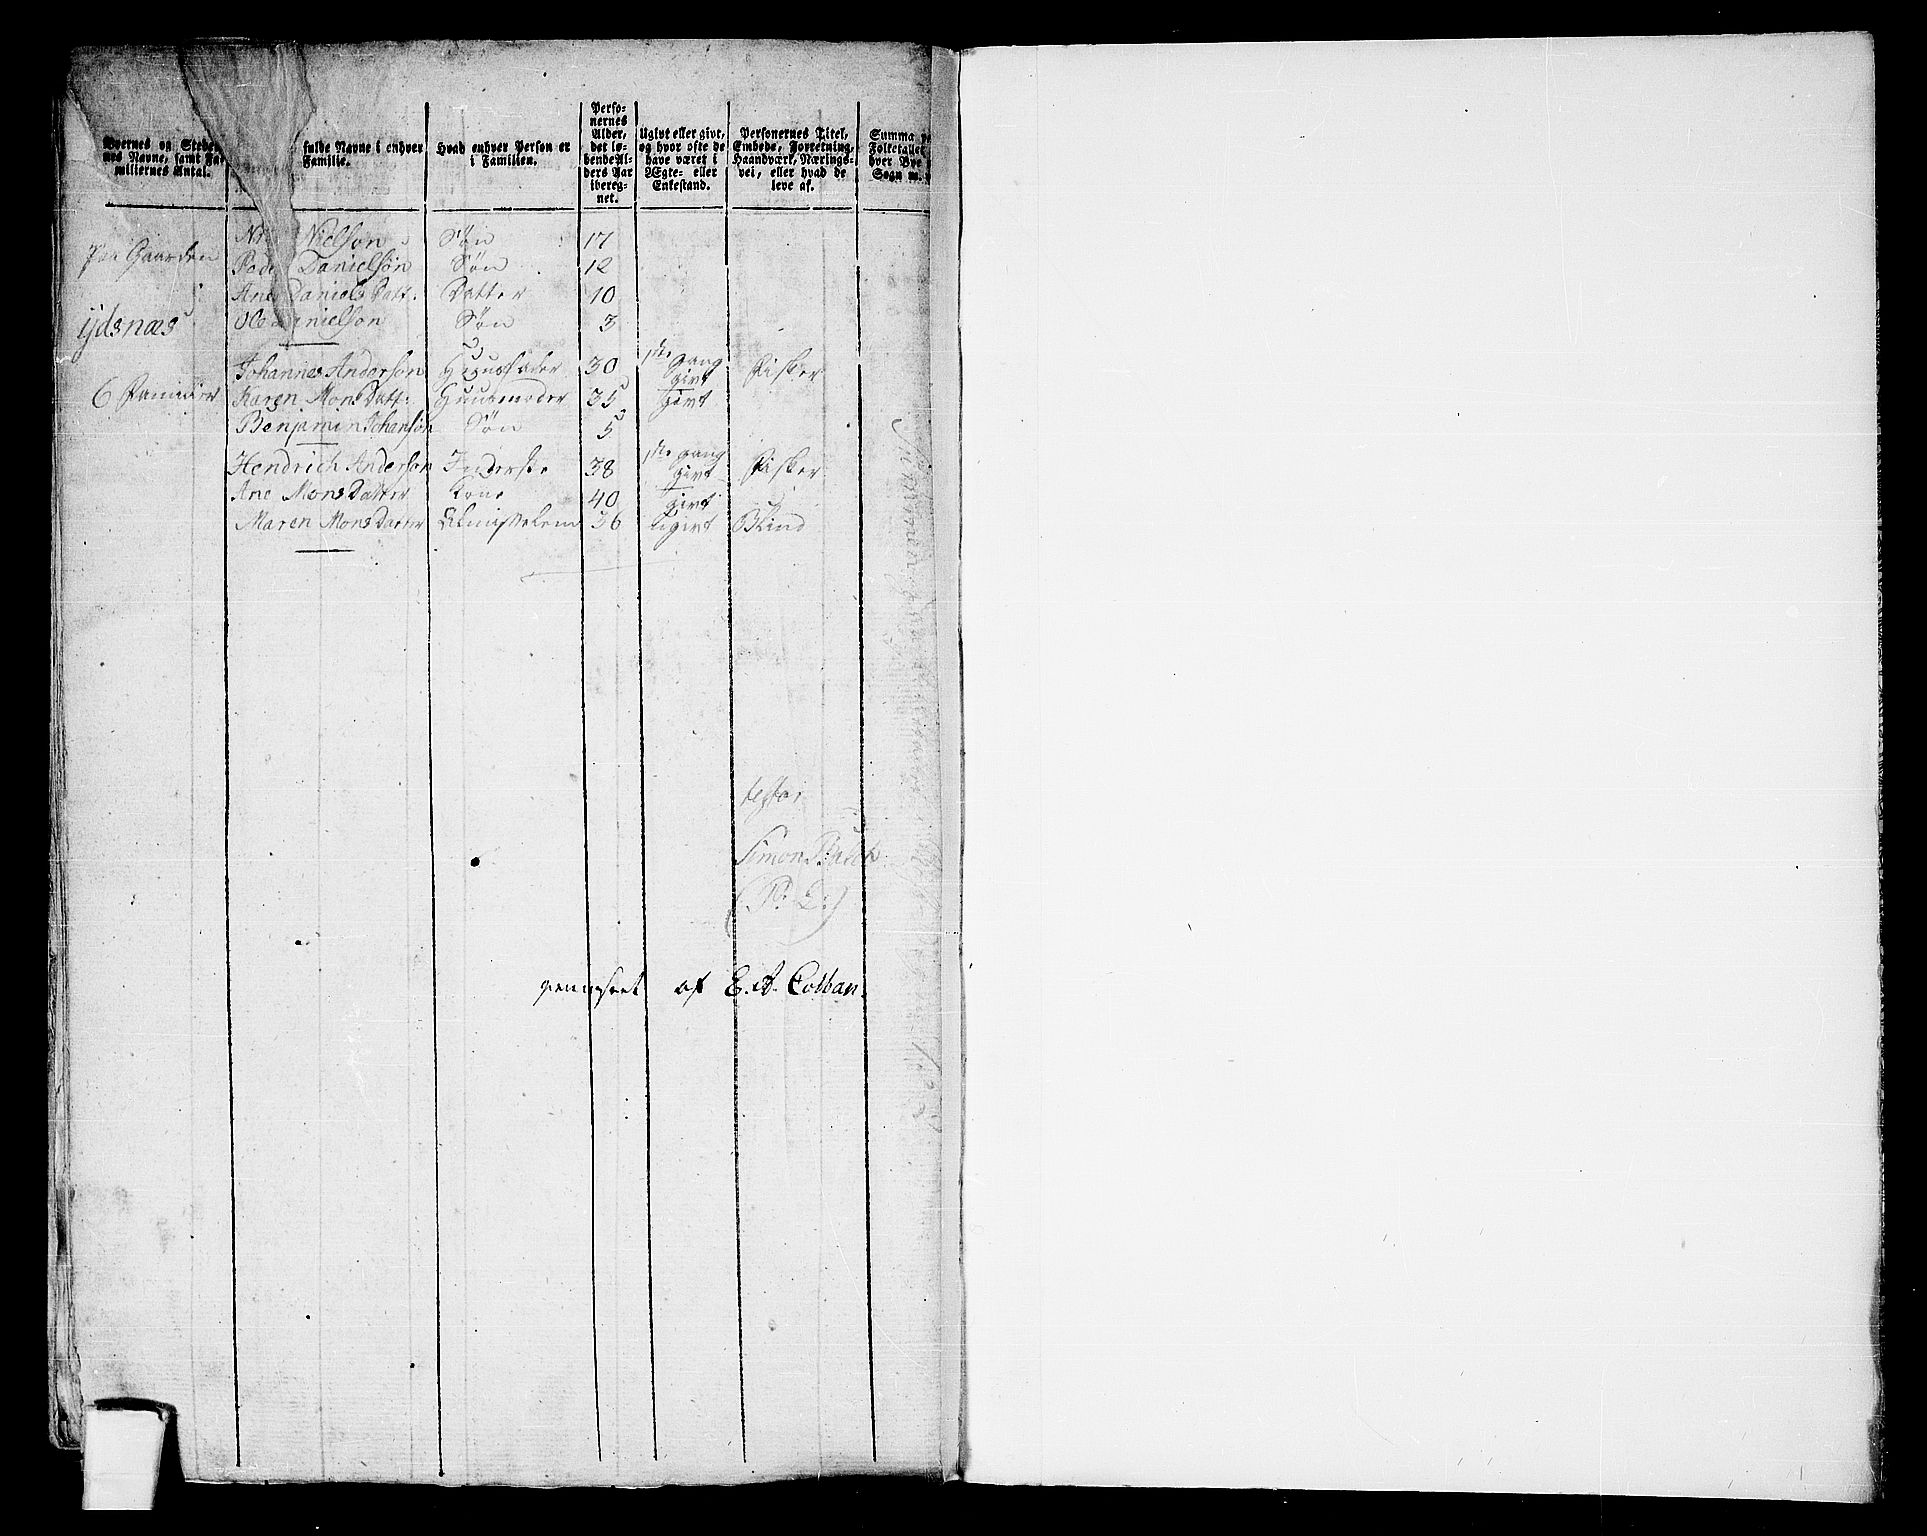 Byernes og Stede-
nes Navne, samt Fa-
miliernes Antal.
fulde Navne i enhver
Familie.
Hvad enhver Person er
i Familien.
Perso-
nernes
Alder,
det lø-
bende Al-
ders Aar
iberegnet.
Ugivt eller givt,
og hvor ofte de
have været i
Ægte- eller
Enkestand.
Personernes Titel,
Embede, Forretning,
Haandværk, Nærings-
vei, eller hvad de
leve af.
Summa
Folketallet
hver Bye
Sogn
Nielson Søn 17
Paa Gaarden
Danielsøn Søn 12
Ane Daniels Datt: Datter 10
ijdsnæs
Ole Søn 3
Johannes Anderson Huusfader 30 1ste gang givt Fisker
6 Familier
Karen Mons Datt: Huusmoder 35 givt
Benjamin Johanson Søn 5
Hendrich Anderson Inderste 38 1ste gang givt Fisker
Ane Mons Datter Kone 40 givt
Maren Mons Datter Almisselem 36 ugivt Blind
testor
Simon
gennemseet af E. A. Colban.